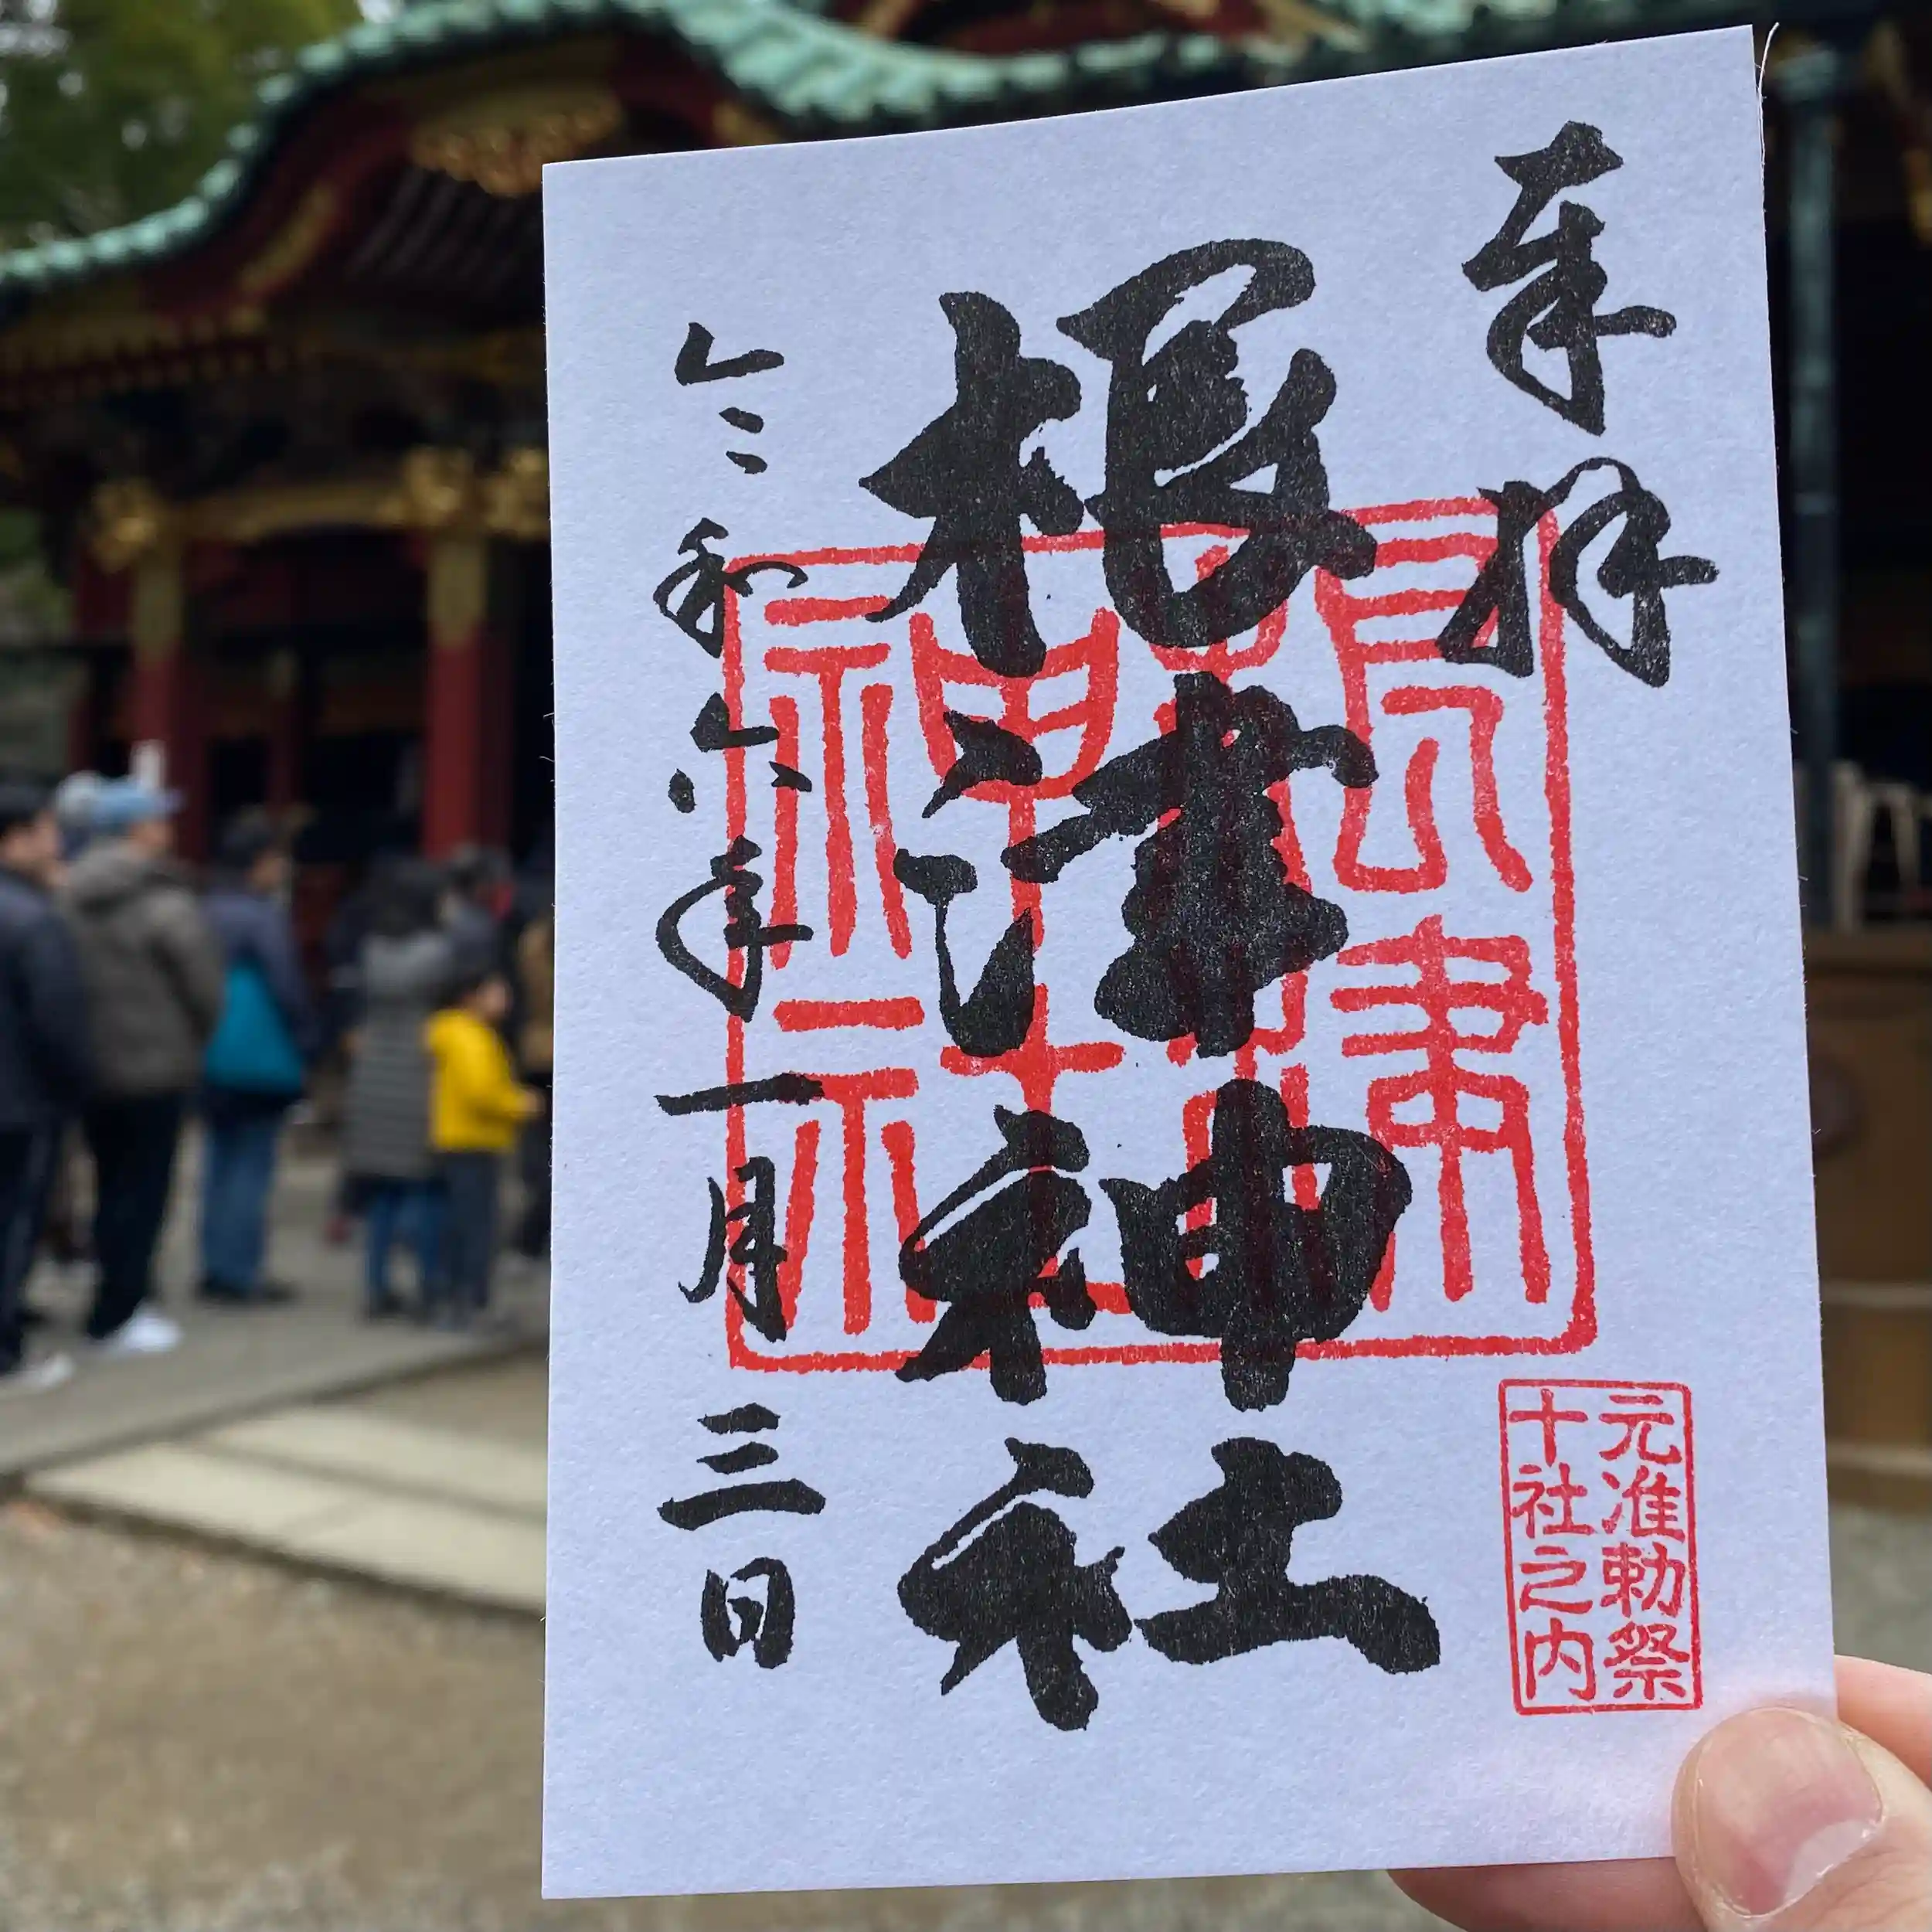 奉拝
根津神社
令和六年一月三日
元准勅祭
十社之内